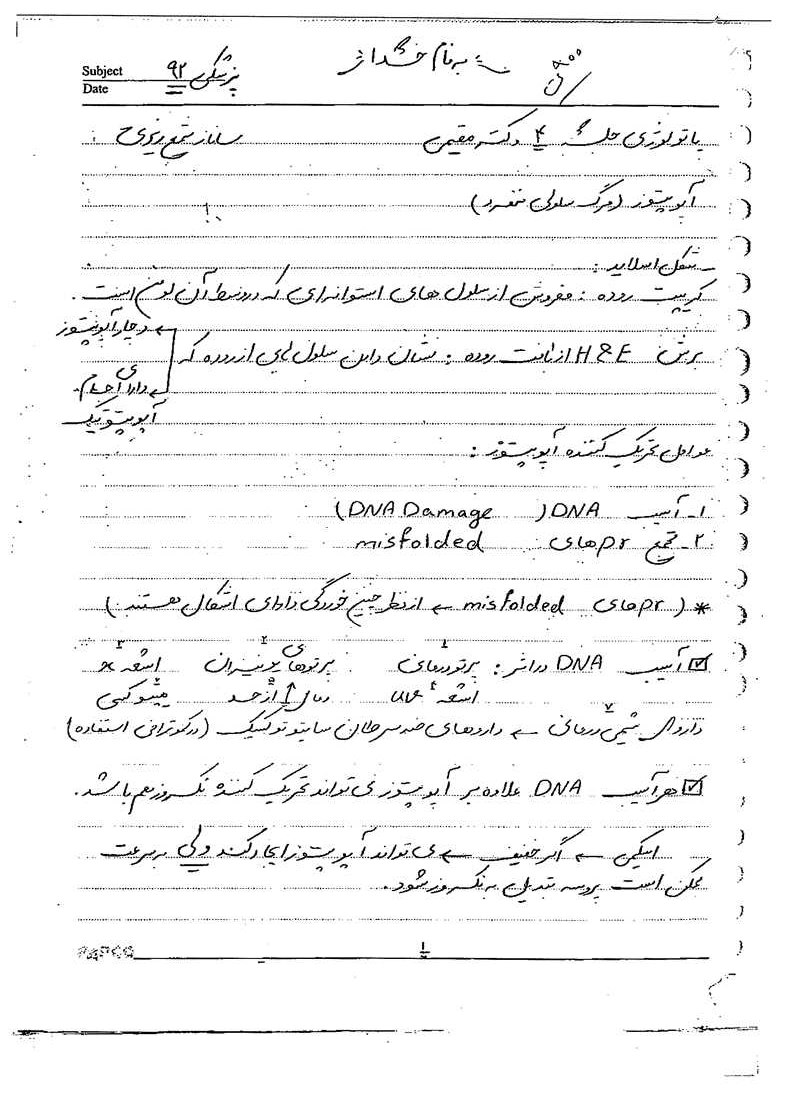 به نام خدا
Subject پزشکی ۹۲
Date
پاتولوژی جلسه ۴ دکتر مقیمی
آپوپتوز (مرگ سلولی منفرد)
شکل اسلاید:
کریپت روده: مفروش از سلول های استوانه ای که در وسط آن لومن است.
برش H&E از بافت روده: نشان دادن سلول هایی از روده که
← دچار آپوپتوز
← دارای اجسام
آپوپتوتیک
عوامل تحریک کننده آپوپتوز:
۱- آسیب DNA (DNA Damage)
۲- تجمع prهای misfolded
* (prهای misfolded ← از نظر چین خوردگی دارای اشکال هستند.)
☑ آسیب DNA در اثر: ۱ پرتودرمانی ۲ پرتوهای یونیزان ۳ اشعه x
۴ اشعه uv
داروهای شیمی درمانی ← داروهای ضد سرطان سایتوتوکسیک (در کموتراپی استفاده)
☑ هر آسیب DNA علاوه بر آپوپتوز می تواند تحریک کننده نکروز هم باشد.
ایسکمی ← اگر خفیف ← می تواند آپوپتوز ایجاد کند ولی به سرعت
ممکن است پروسه تبدیل به نکروز شود.
PAPCO ۱